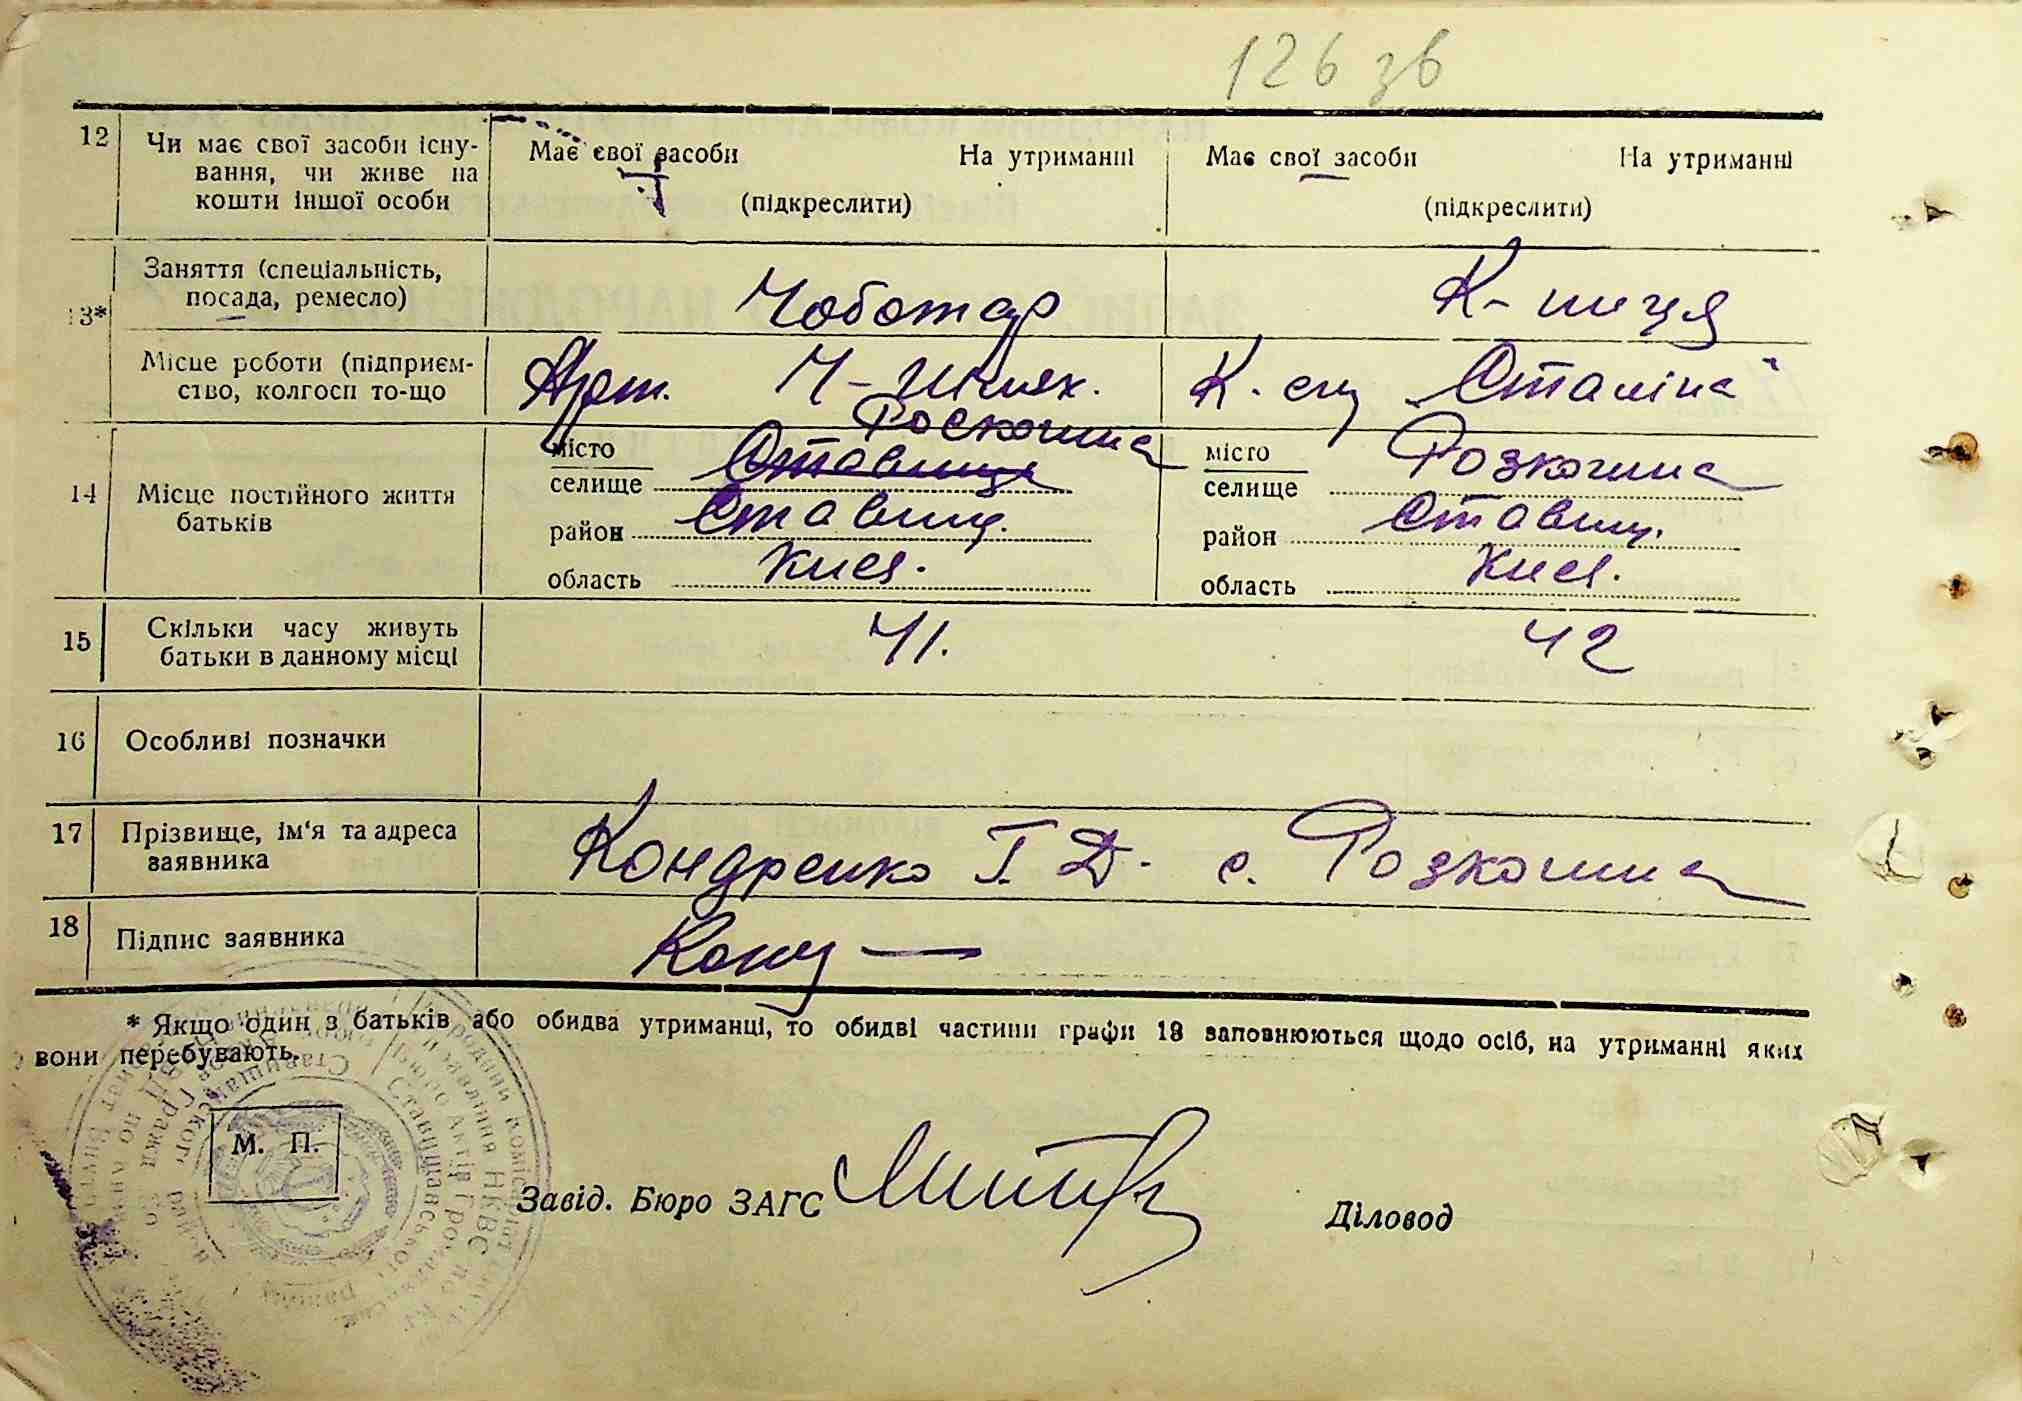 126 зв
12 Чи має свої засоби існу-
вання, чи живе на
кошти іншої особи
Має свої засоби На утриманні
(підкреслити)
Має свої засоби На утриманні
(підкреслити)
13* Заняття (спеціальність,
посада, ремесло)
Чоботар
К-ниця
Місце роботи (підприєм-
ство, колгосп то-що
Арт.
К. сгц Сталіна"
14 Місце постійного життя
батьків
місто Роскошна
селище Ставище
район Ставищ.
область Київ.
місто Розкошна
селище
район Ставищ.
область Київ.
15 Скільки часу живуть
батьки в данному місці
41.
42
16 Особливі позначки
17 Прізвище, ім'я та адреса
заявника
Кондренко Г. Д. с. Розкошна
18 Підпис заявника
* Якщо один з батьків або обидва утриманці, то обидві частини графи 13 заповнюються щодо осіб, на утриманні яких
вони перебувають.
М. П.
Завід. Бюро ЗАГС
Діловод